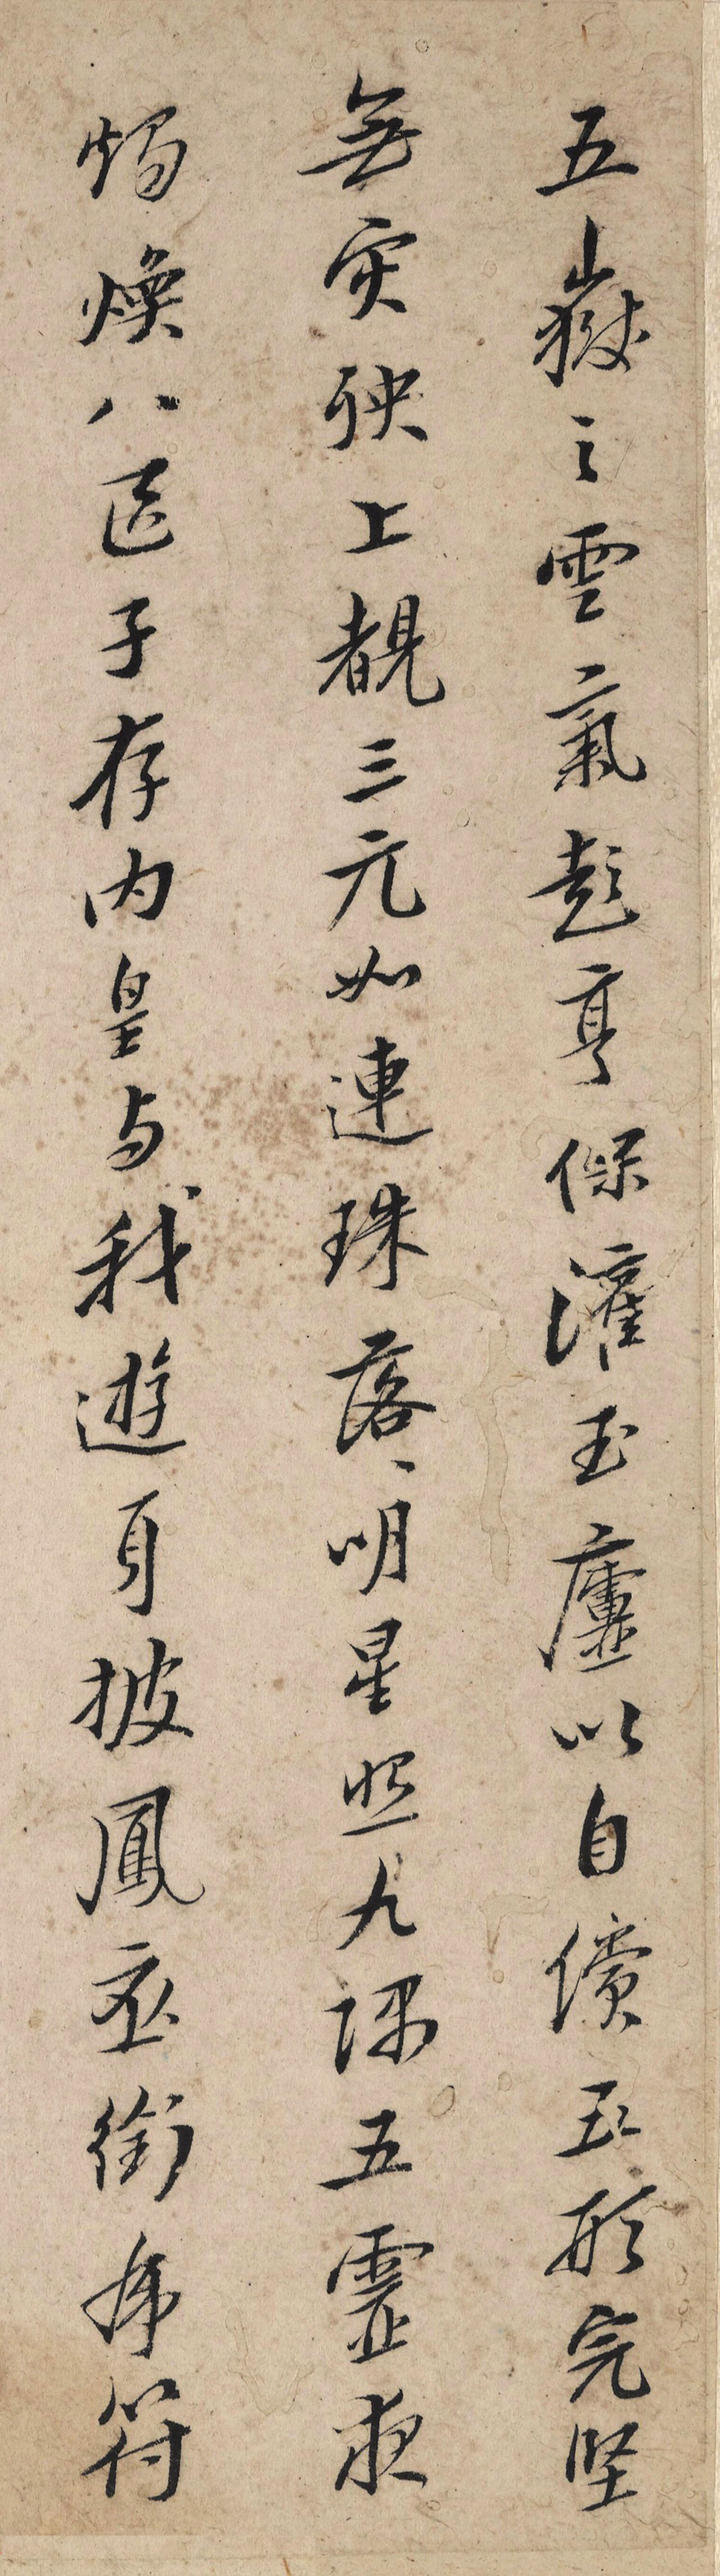 五嶽之雲氣彭亨保灌玉廬以自償五形完堅
無灾殃上覩三元如連珠落〻明星照九隅五靈夜
燭煥八區子存内皇与我遊身披鳳衣銜虎符